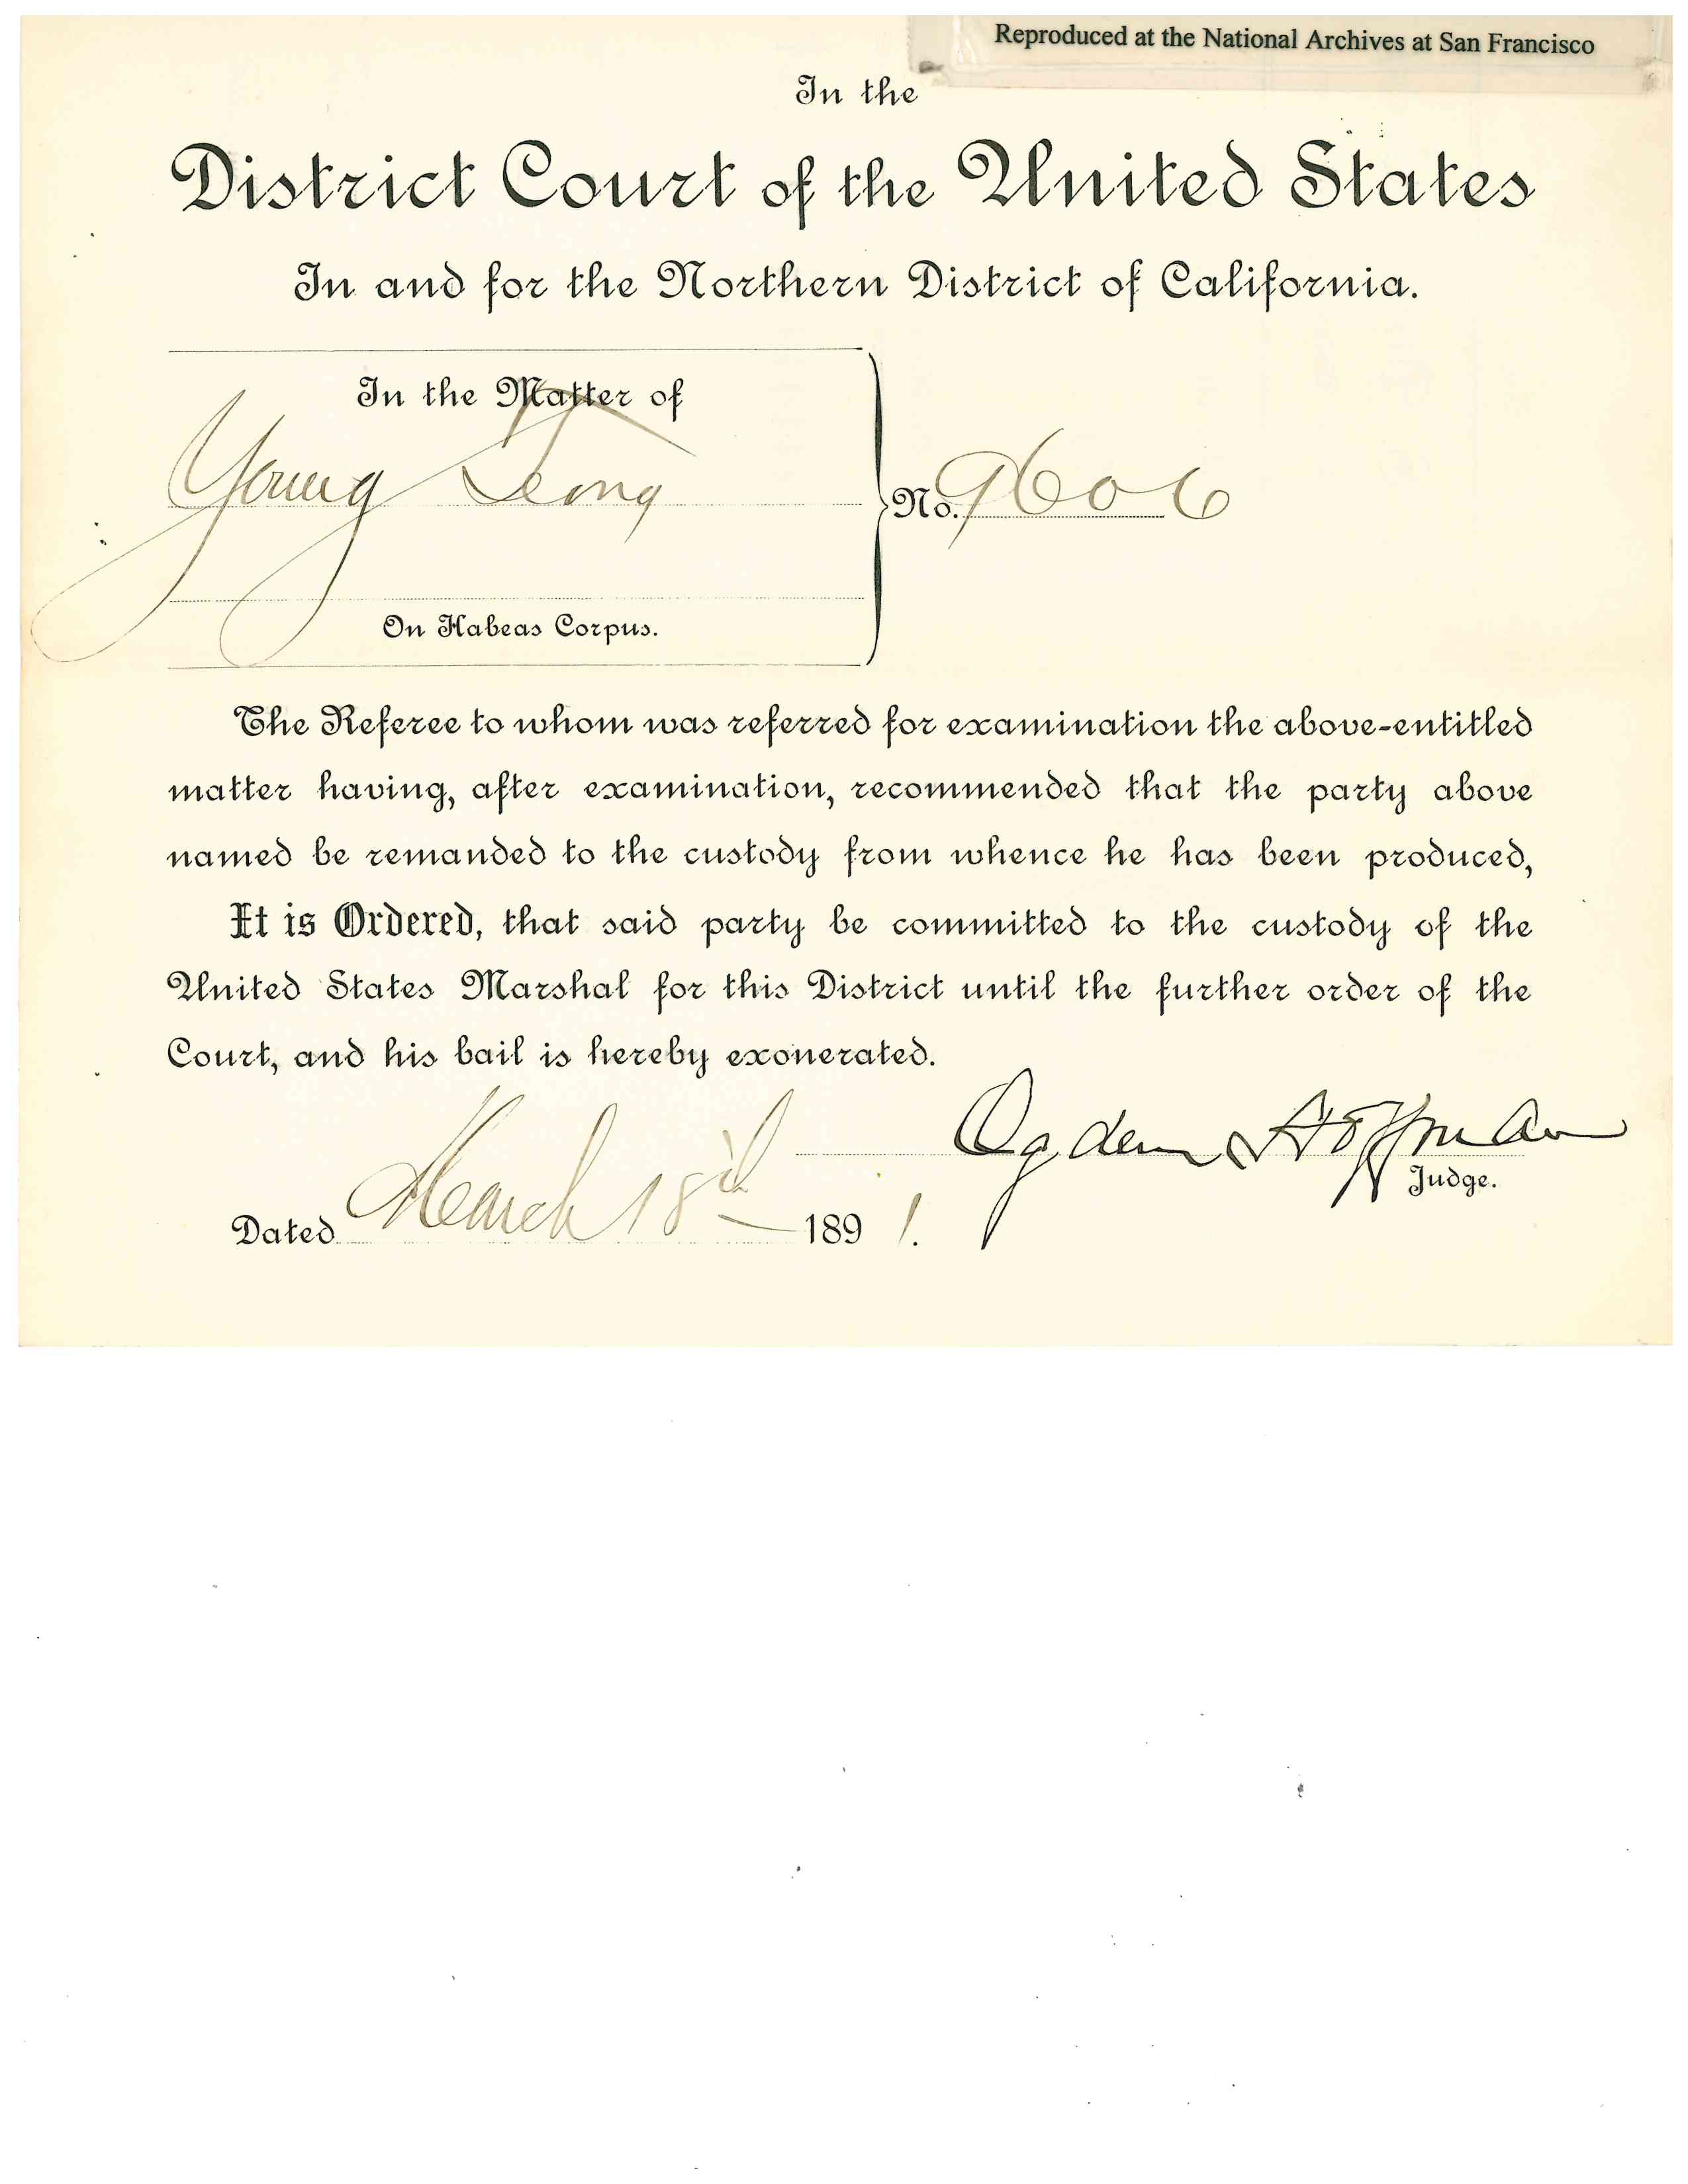 Reproduced at the National Archives at San Francisco
In the
District Court of the United States
In and for the Northern District of California.
In the Matter of
Young
No. 9606
On Habeas Corpus.
The Referee to whom was referred for examination the above-entitled
matter having, after examination, recommended that the party above
named be remanded to the custody from whence he has been produced,
It is Ordered, that said party be committed to the custody of the
United States Marshal for this District until the further order of the
Court, and his bail is hereby exonerated.
Ogden Hoffman
Judge.
Dated March 18th 1891.